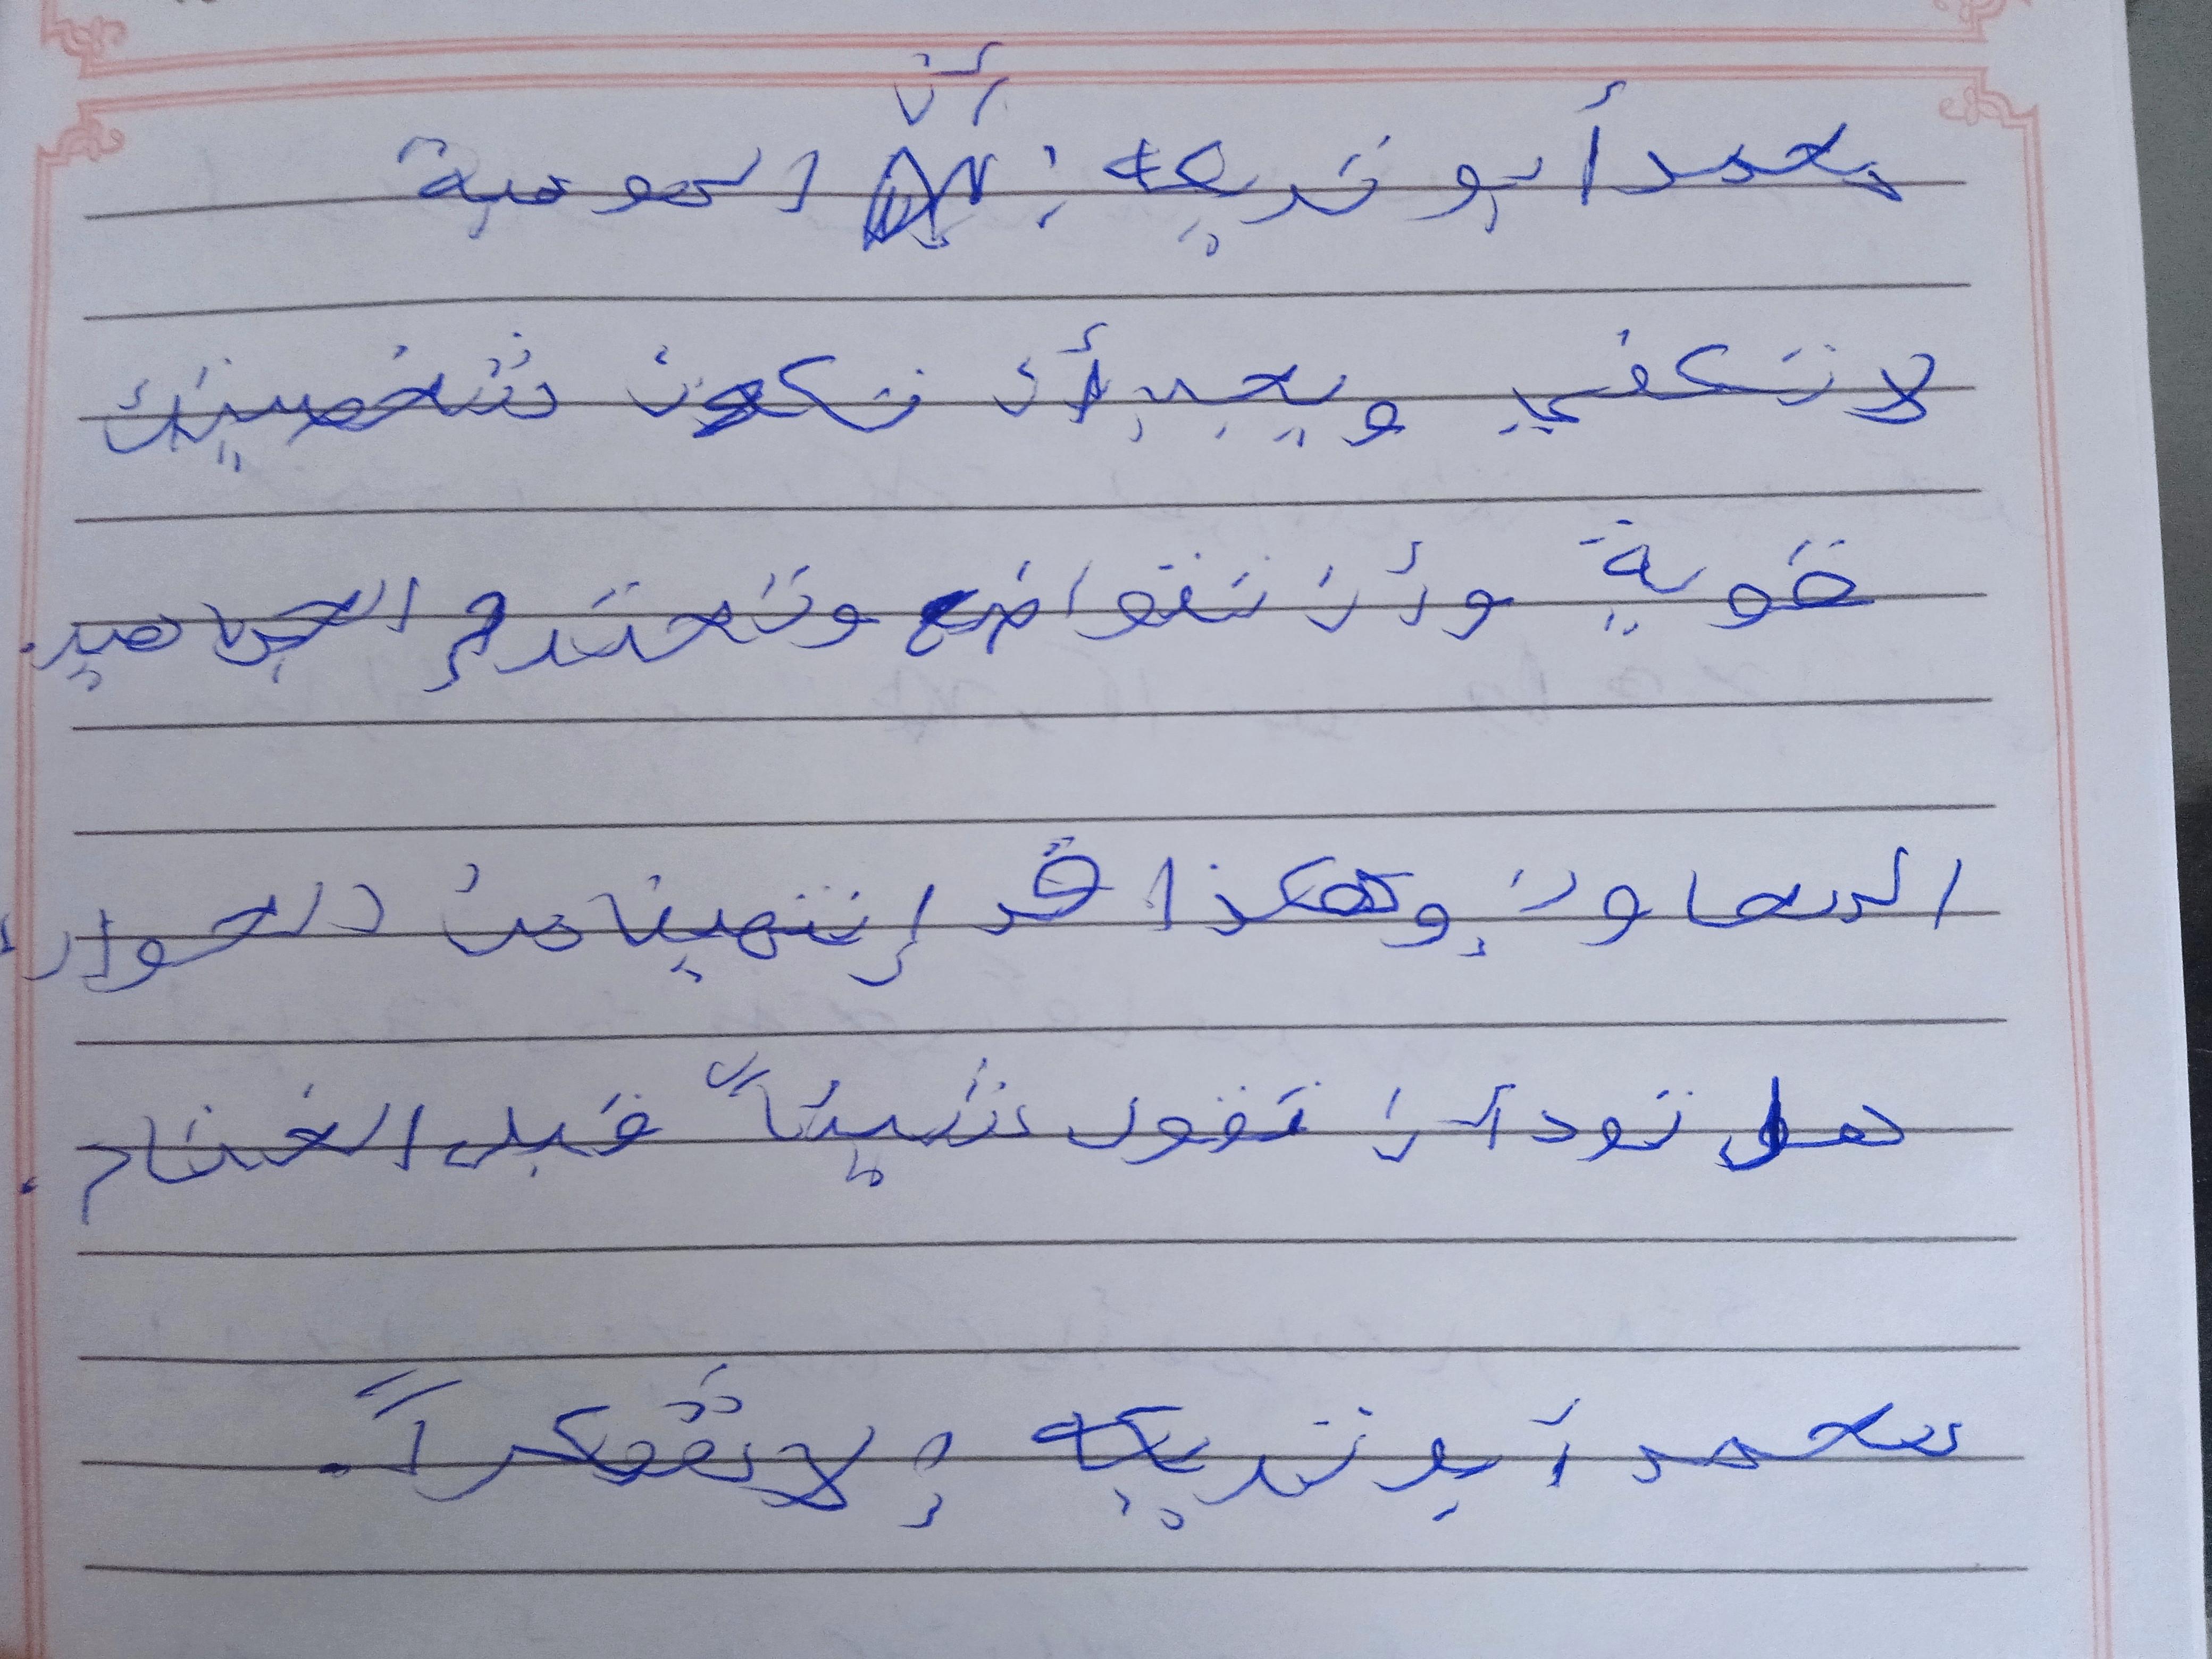 محمد أبو تريكه : أن الموهبة
لا تكفي ويجب أن تكون شخصيتك
قوية وأن تتواضع وتحترم الجماهير.
السعاون وهكذا قد إنتهينا من الحوار،
هل تود أن تقول شيئاً قبل الختام.
محمد أبو تريكه : لا شكراً.